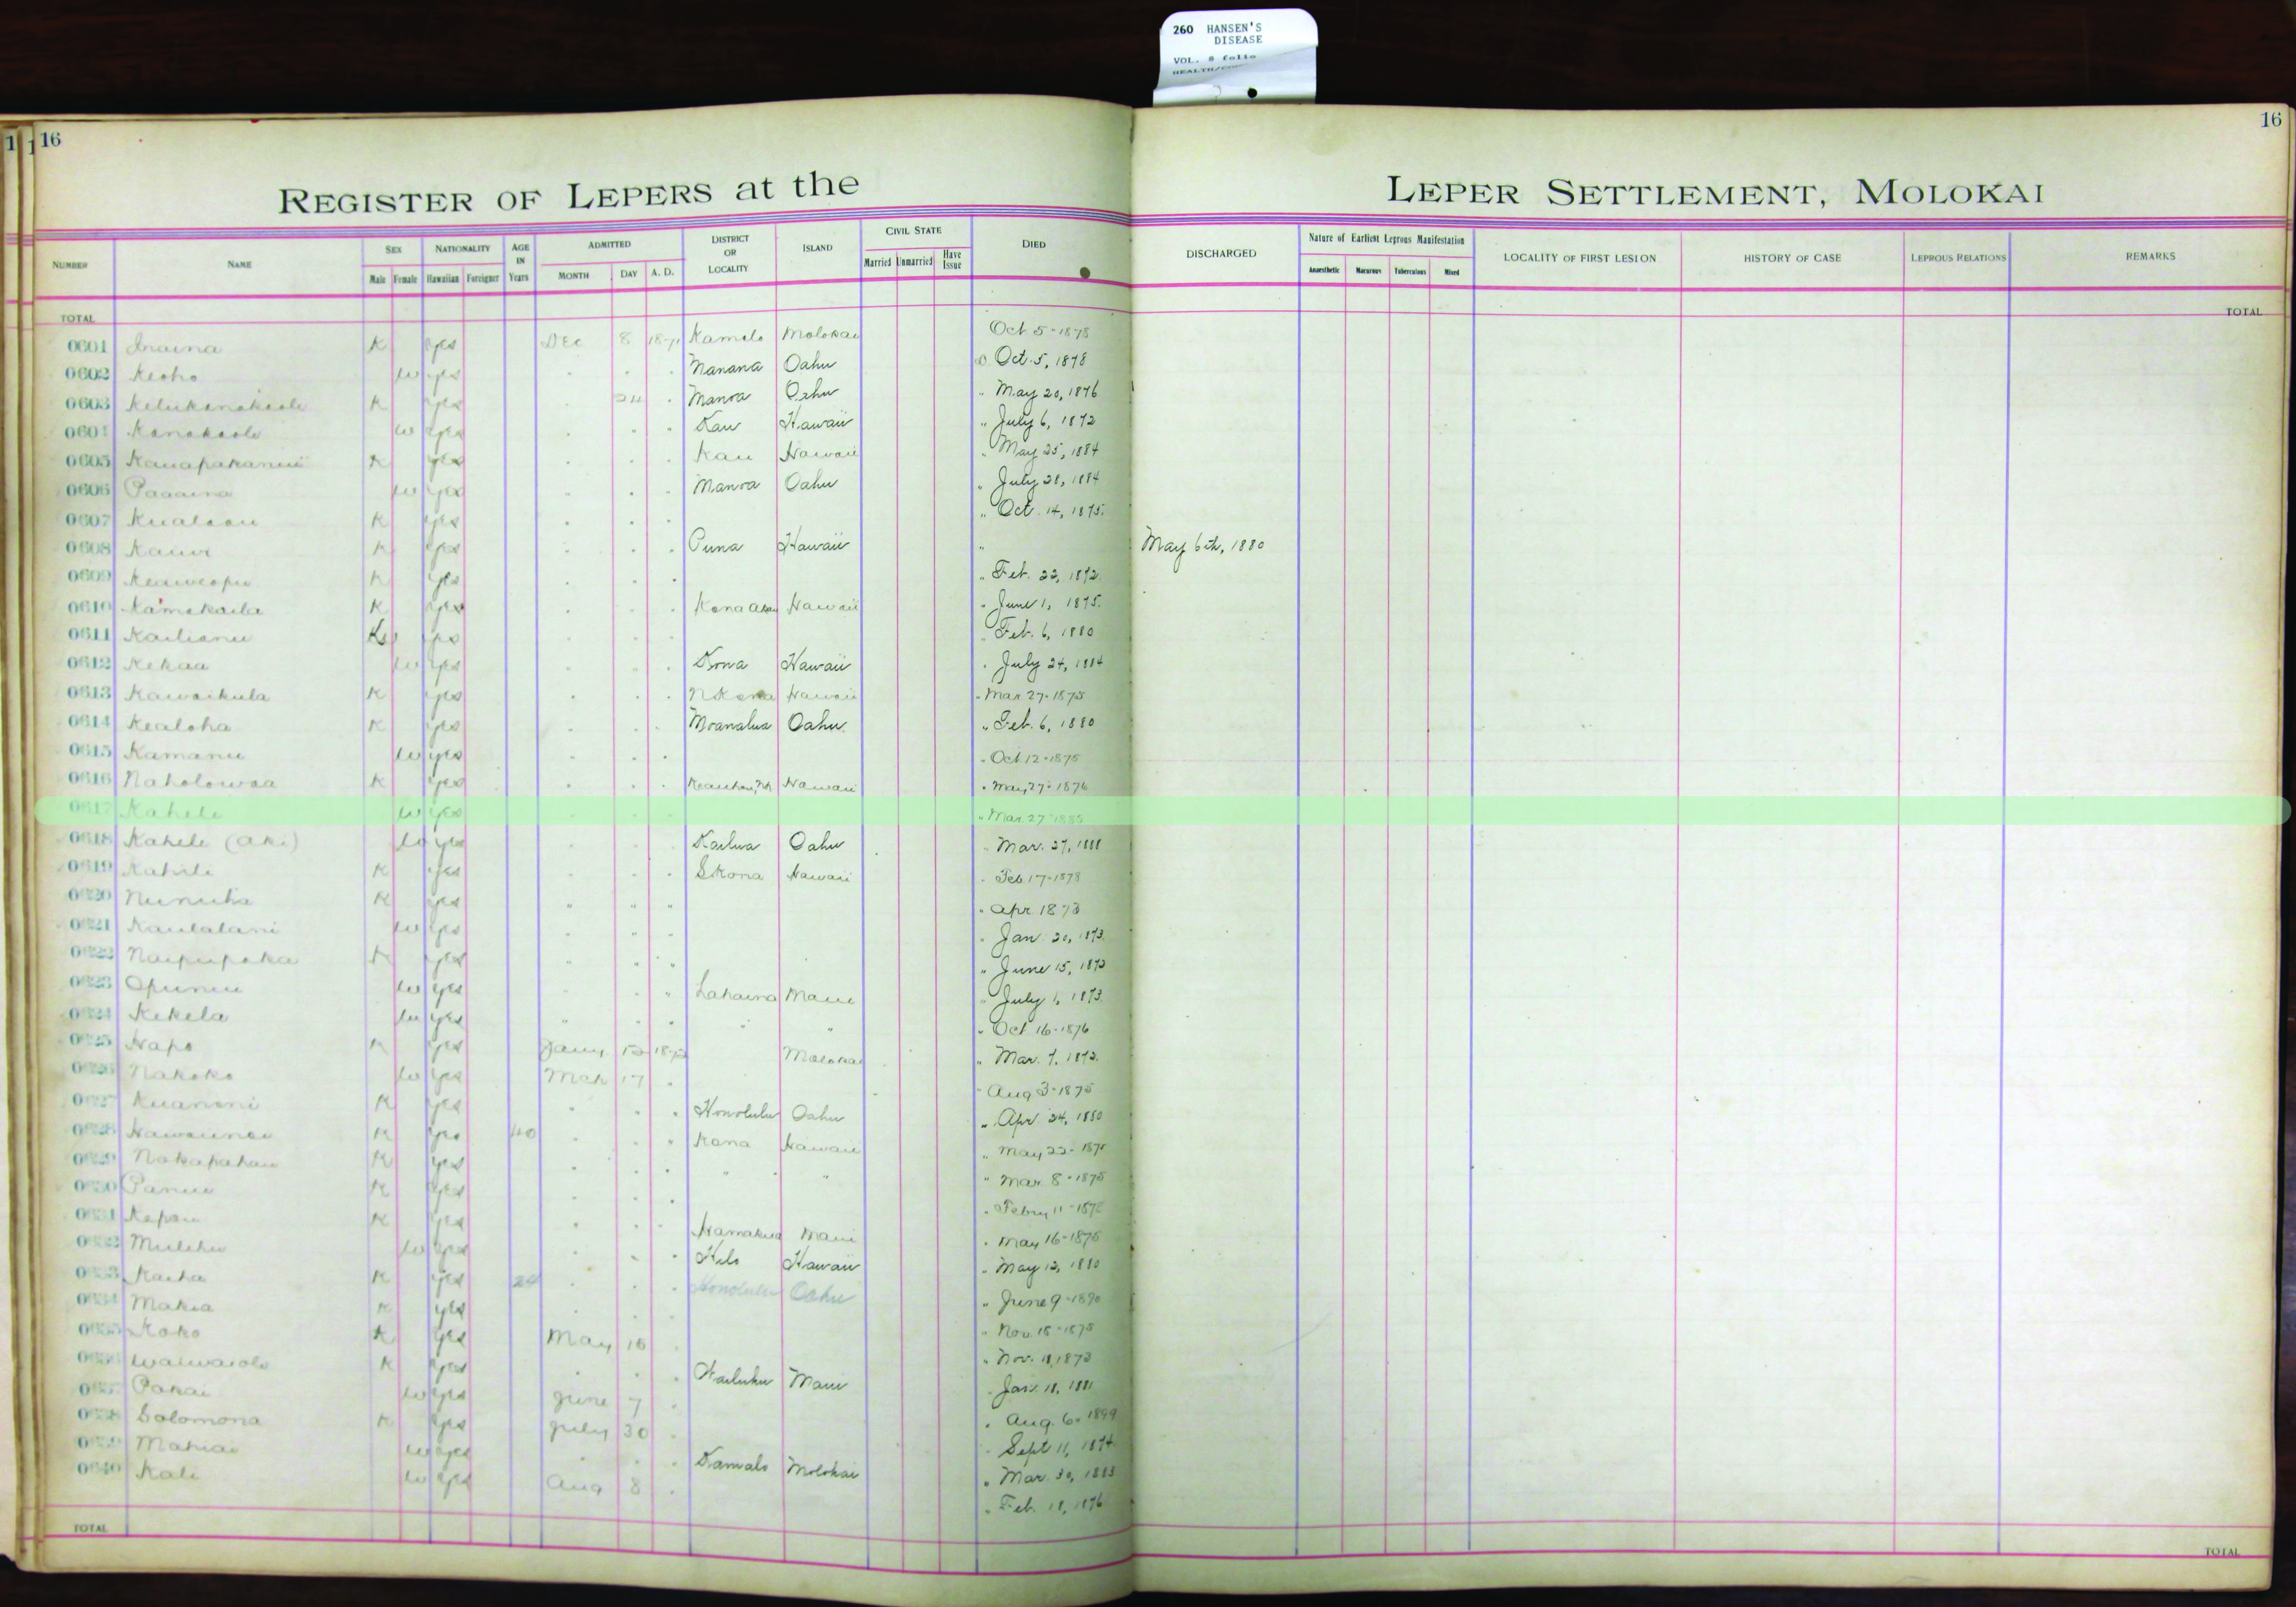 260 HANSEN'S
DISEASE
VOL. 8 folio
16
16
REGISTER OF LEPERS at the LEPER SETTLEMENT, MOLOKAI
NUMBER NAME SEX Male Female NATIONALITY Hawaiian Foreigner AGE IN Years ADMITTED MONTH DAY A. D. DISTRICT OR LOCALITY ISLAND CIVIL STATE Married Unmarried Have Issue DIED DISCHARGED Nature of Earliest Leprous Manifestation Anaesthetic Macurous Tuberculous Mixed LOCALITY OF FIRST LESION HISTORY OF CASE LEPROUS RELATIONS REMARKS
TOTAL TOTAL
0601 Inaina K yes Dec 8 1871 Kamalo Molokai Oct 5-1878
0602 Keoho w yes Manana Oahu Oct. 5, 1878
0603 K yes 24 Manoa Oahu " May 20, 1876
0604 Kanakaole w yes Kau Hawaii " July 6, 1872
0605 K yes Kau Hawaii " May 25, 1884
0606 Paaaina w yes Manoa Oahu " July 28, 1884
0607 K yes " Oct. 14, 1875.
0608 Kauwe K yes Puna Hawaii " May 6th, 1880
0609 Keaweopu K yes " Feb. 22, 1872.
0610 Kamakaila K yes Kona Akau Hawaii " June 1, 1875.
0611 Kailianu K yes Feb. 6, 1880
0612 Kekaa w yes Kona Hawaii " July 24, 1884
0613 Kawaikula K yes N Kona Hawaii " Mar 27-1875
0614 Kealoha K yes Moanalua Oahu. " Feb. 6, 1880
0615 Kamanu w yes " Oct 12-1875
0616 Naholowaa K yes Keauhou, NK Hawaii " May 27-1876
0617 Kahele w yes " Mar. 27-1885
0618 Kahele (Aki) w yes Kailua Oahu Mar. 27, 1888
0619 Kahili K yes S Kona Hawaii " Feb. 17-1878
0620 K yes " " " " Apr 1873
0621 Kaulalani w yes " Jan. 20, 1873.
0622 Naipupaka K yes " June 15, 1873
0623 Opunui w yes Lahaina Maui " July 1, 1873.
0624 Kekela w yes " " " Oct 16-1876
0625 Hapo K yes Jany 12 1872 Molokai " Mar. 7, 1872.
0626 Nakoko w yes Mch 17 Aug 3-1875
0627 K yes Honolulu Oahu " Apr. 24, 1880
0628 K yes 40 Kona Hawaii " May 22-
0629 Nakapahau K yes " " " Mar 8-1875
0630 Panui K yes " Febry 11-
0631 Kapau K yes Hamakua Maui " May 16-1875
0632 Mulehu w yes Hilo Hawaii " May 12, 1880
0633 Kaiha K yes 24 Honolulu Oahu " June 9-1890
0634 Makia K yes " Nov. 15-1875
0635 Koko K yes May 16 " Nov. 11, 1873
0636 Waiwaiole K yes Wailuku Maui Jan. 18, 1881
0637 Pakai w yes June 7 " Aug. 6-1899
0638 Solomona K yes July 30 Sept. 11, 1874
0639 Mahiai w yes Kamalo Molokai " Mar. 30, 1883
0640 Kali w yes Aug 8 " Feb. 18, 1876
TOTAL TOTAL